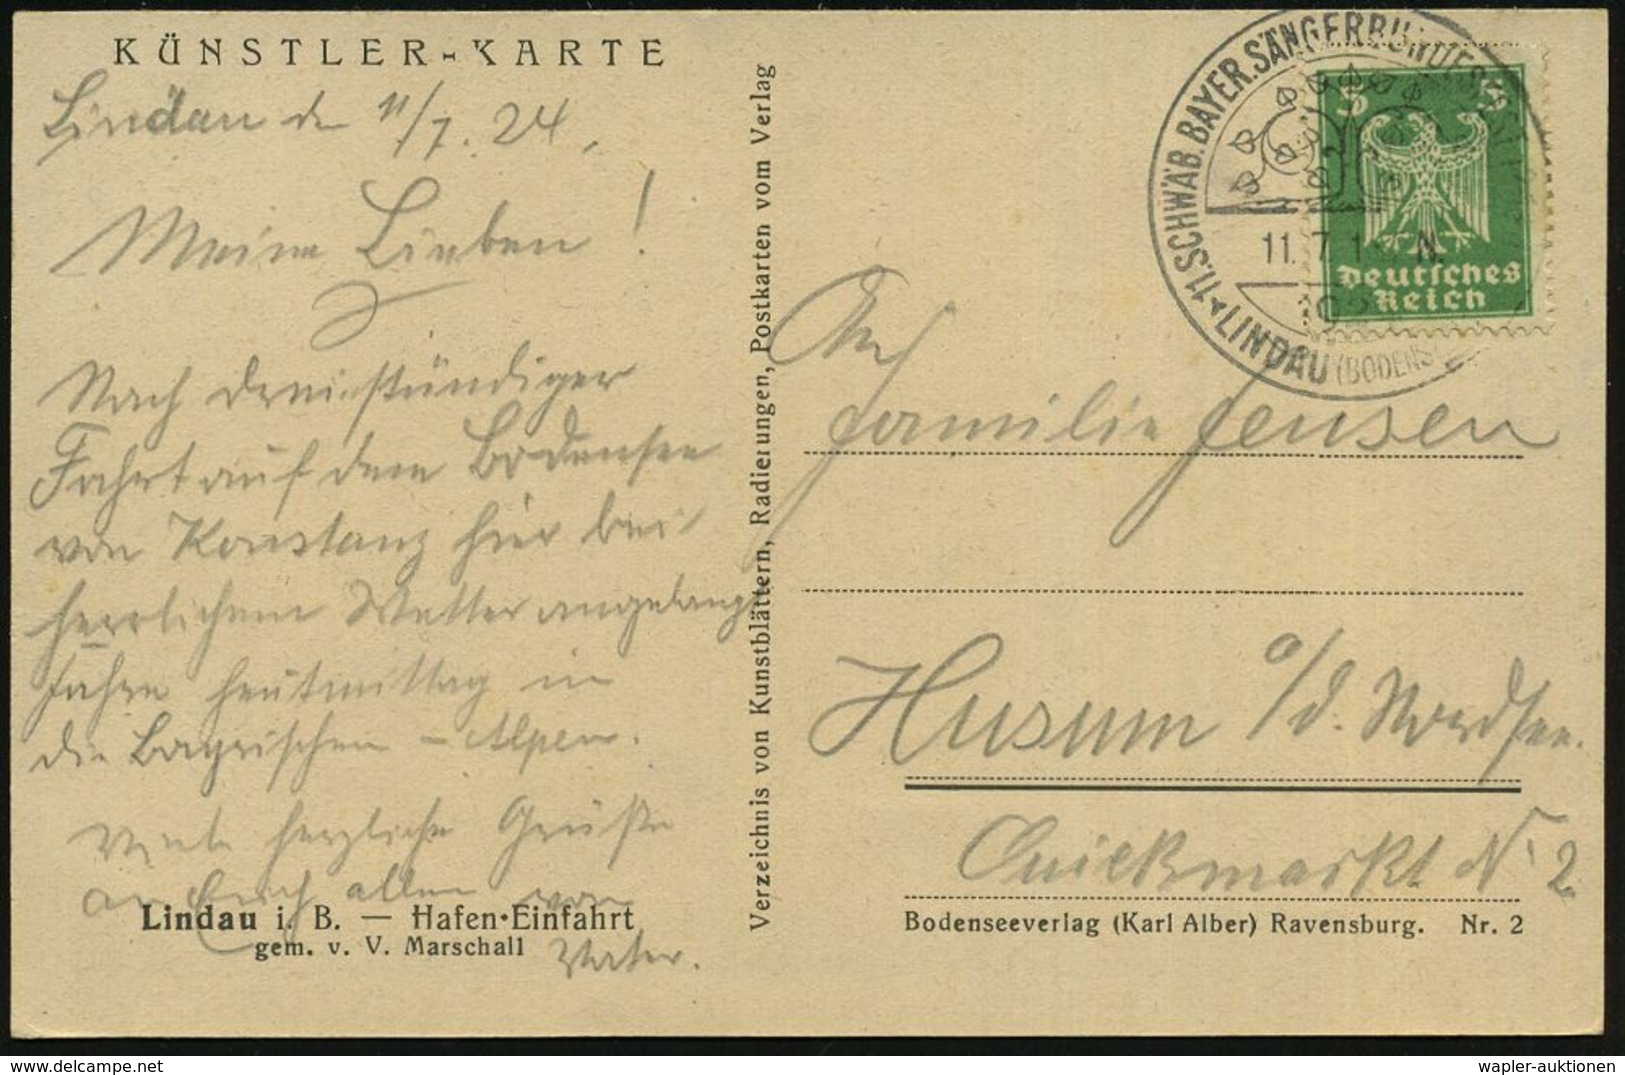 KÜNSTLER-KARTE
Lindau den 11/7. 24.
Meine Lieben!
Nach dreistündiger
Fahrt auf dem Bodensee
von Konstanz hier bei
herrlichem Wetter angelangt
fahren heutmittag in
die Bayrischen - Alpen.
Viele herzliche Grüße
an Euch allen von
Vater.
Lindau i. B. — Hafen-Einfahrt
gem. v. V. Marschall
Verzeichnis von Kunstblättern, Radierungen, Postkarten vom Verlag
11. SCHWÄB. BAYER. SÄNGERBUNDESFEST
11. 7. 1
LINDAU (BODENS
5 5
Deutsches
Reich
An
Familie Jensen
Husum a/d. Nordsee.
Quickmarkt N. 2
Bodenseeverlag (Karl Alber) Ravensburg. Nr. 2
wapler-auktionen